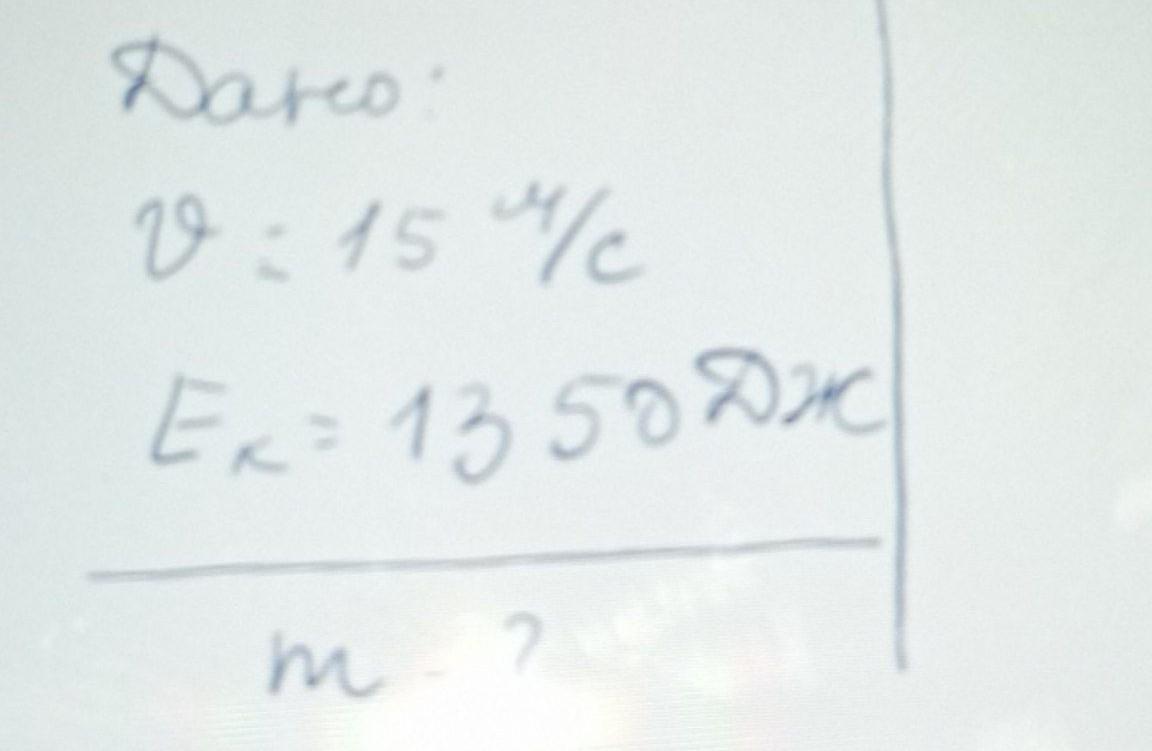 Дано:
υ = 15 м/с
Eк = 1350 Дж
m - ?